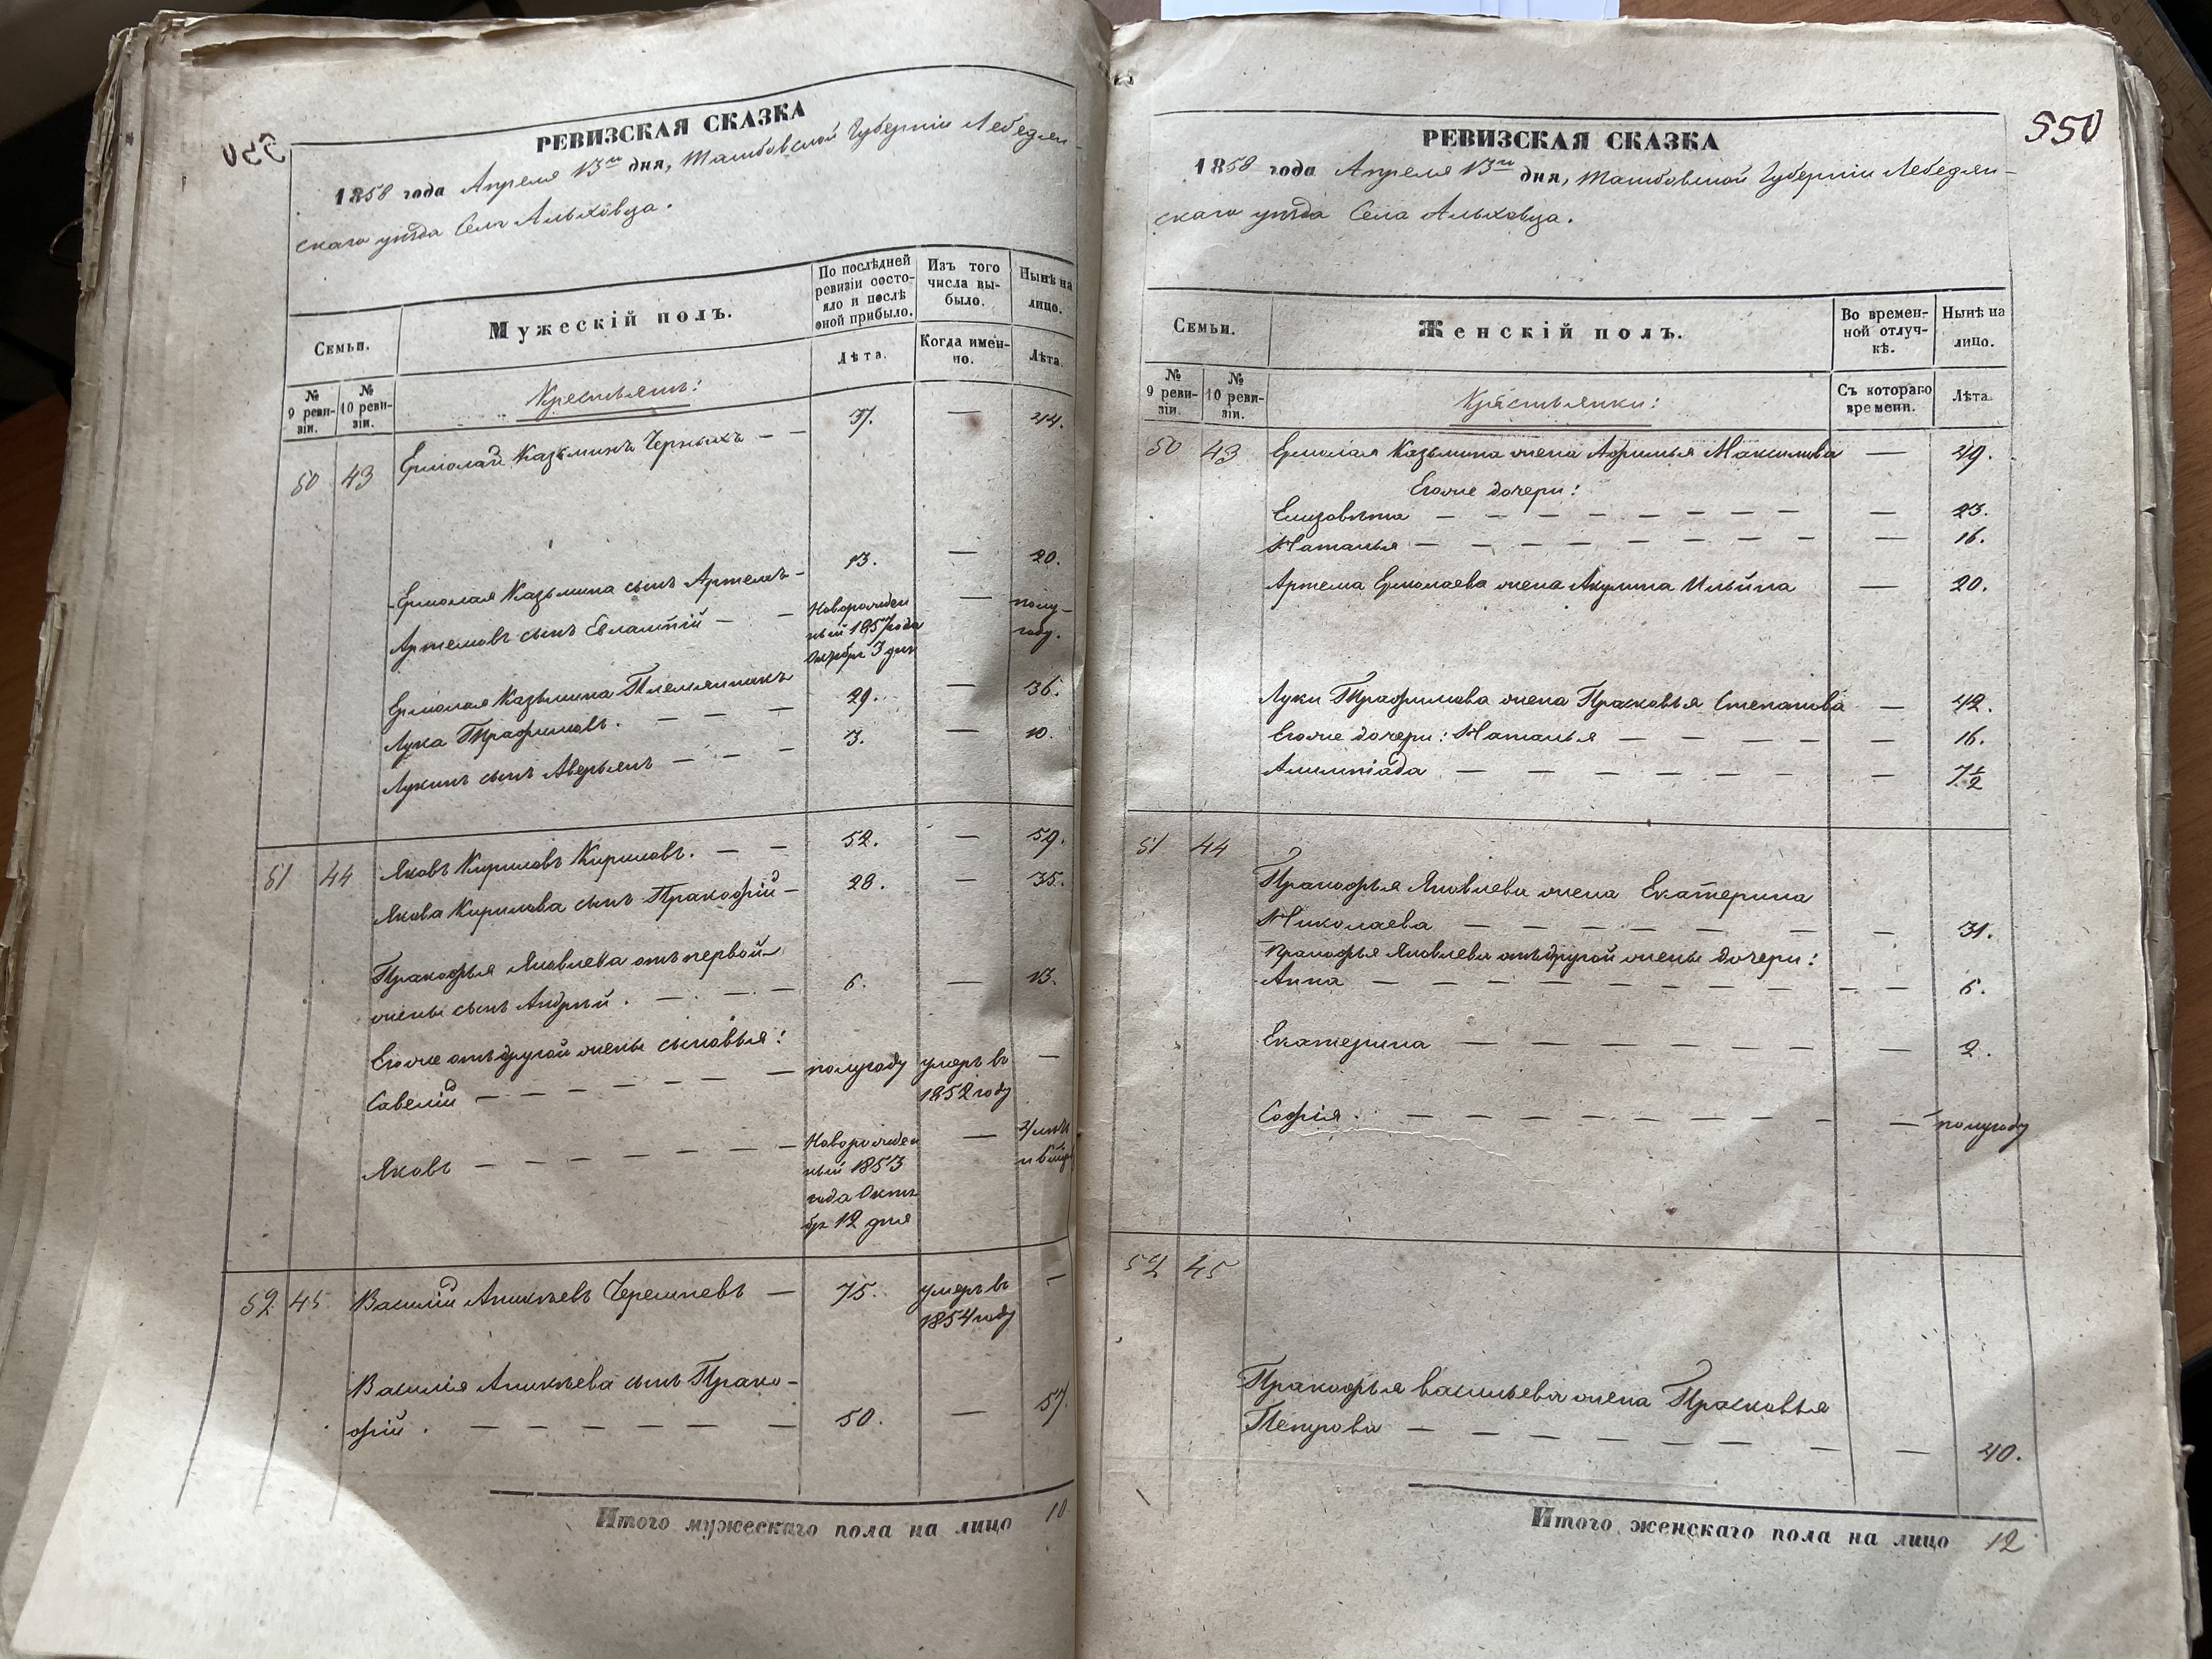 РЕВИЗСКАЯ СКАЗКА
1858 года Апреля 13го дня, Тамбовской Губерніи Лебедян-
скаго уѣзда Села Альховца.
Семьи.
Мужескій полъ.
По послѣдней ревизіи состо-яло и послѣ оной прибыло.
Изъ того числа вы-было.
Нынѣ на лицо.
№ 9 реви-зіи.
№ 10 реви-зіи.
Лѣта.
Когда имен-но.
Лѣта.
Крестьянъ:
50 43 Ермолай Казьминъ Черныхъ — — 37. — 44.
Ермолая Казьмина сынъ Артемъ — 13. — 20.
Артемовъ сынъ Евлампій — — Новорожден — полу-
ный 1857 года году.
Октября 3 дня
Ермолая Казьмина Племянникъ
Лука Трафимовъ. — — — 29. — 36.
Лукинъ сынъ Аверьянъ — — — 3. — 10.
51 44 Яковъ Кириловъ Кириловъ. — — 52. — 59.
Якова Кирилова сынъ Пракофій — 28. — 35.
Пракофья Яковлева отъ первой
жены сынъ Андрѣй. — — — 6. — 13.
Егоже отъ другой жены сыновья:
Савелій — — — — — полугоду умеръ въ —
1852 году
Яковъ — — — — — Новорожден — 4 лѣтъ
ный 1853
года Октя
бр 12 дня
52. 45. Василій Аникѣевъ Черемневъ — 75. умеръ въ —
1854 году
Василія Аникѣева сынъ Прако-
фій. — — — — — — 50. — 57.
Итого мужескаго пола на лицо 10
550
РЕВИЗСКАЯ СКАЗКА
1858 года Апреля 13го дня, Тамбовской Губерніи Лебедян-
скаго уѣзда Села Альховца.
Семьи.
Женскій полъ.
Во времен-ной отлуч-кѣ.
Нынѣ на лицо.
№ 9 реви-зіи.
№ 10 реви-зіи.
Съ котораго времени.
Лѣта.
Крястьянки:
50 43 Ермолая Казьмина жена Афимья Максимова — 49.
Егоже дочери:
Елизовѣта — — — — — — — — 23.
Наталья — — — — — — — — 16.
Артема Ермолаева жена Акулина Ильина — 20.
Луки Трафимова жена Прасковья Степанова — 42.
Егоже дочери: Наталья — — — — — 16.
Алимпіада — — — — — — — 7½
51 44 Пракофья Яковлева жена Екатерина
Николаева — — — — — — — — 31.
Пракофья Яковлева отъ другой жены дочери:
Анна — — — — — — — — — — 6.
Екатерина — — — — — — — 2.
Софія. — — — — — — — полугоду
52 45
Пракофья Васильева жена Прасковья
Петрова — — — — — — — — 40.
Итого женскаго пола на лицо 12